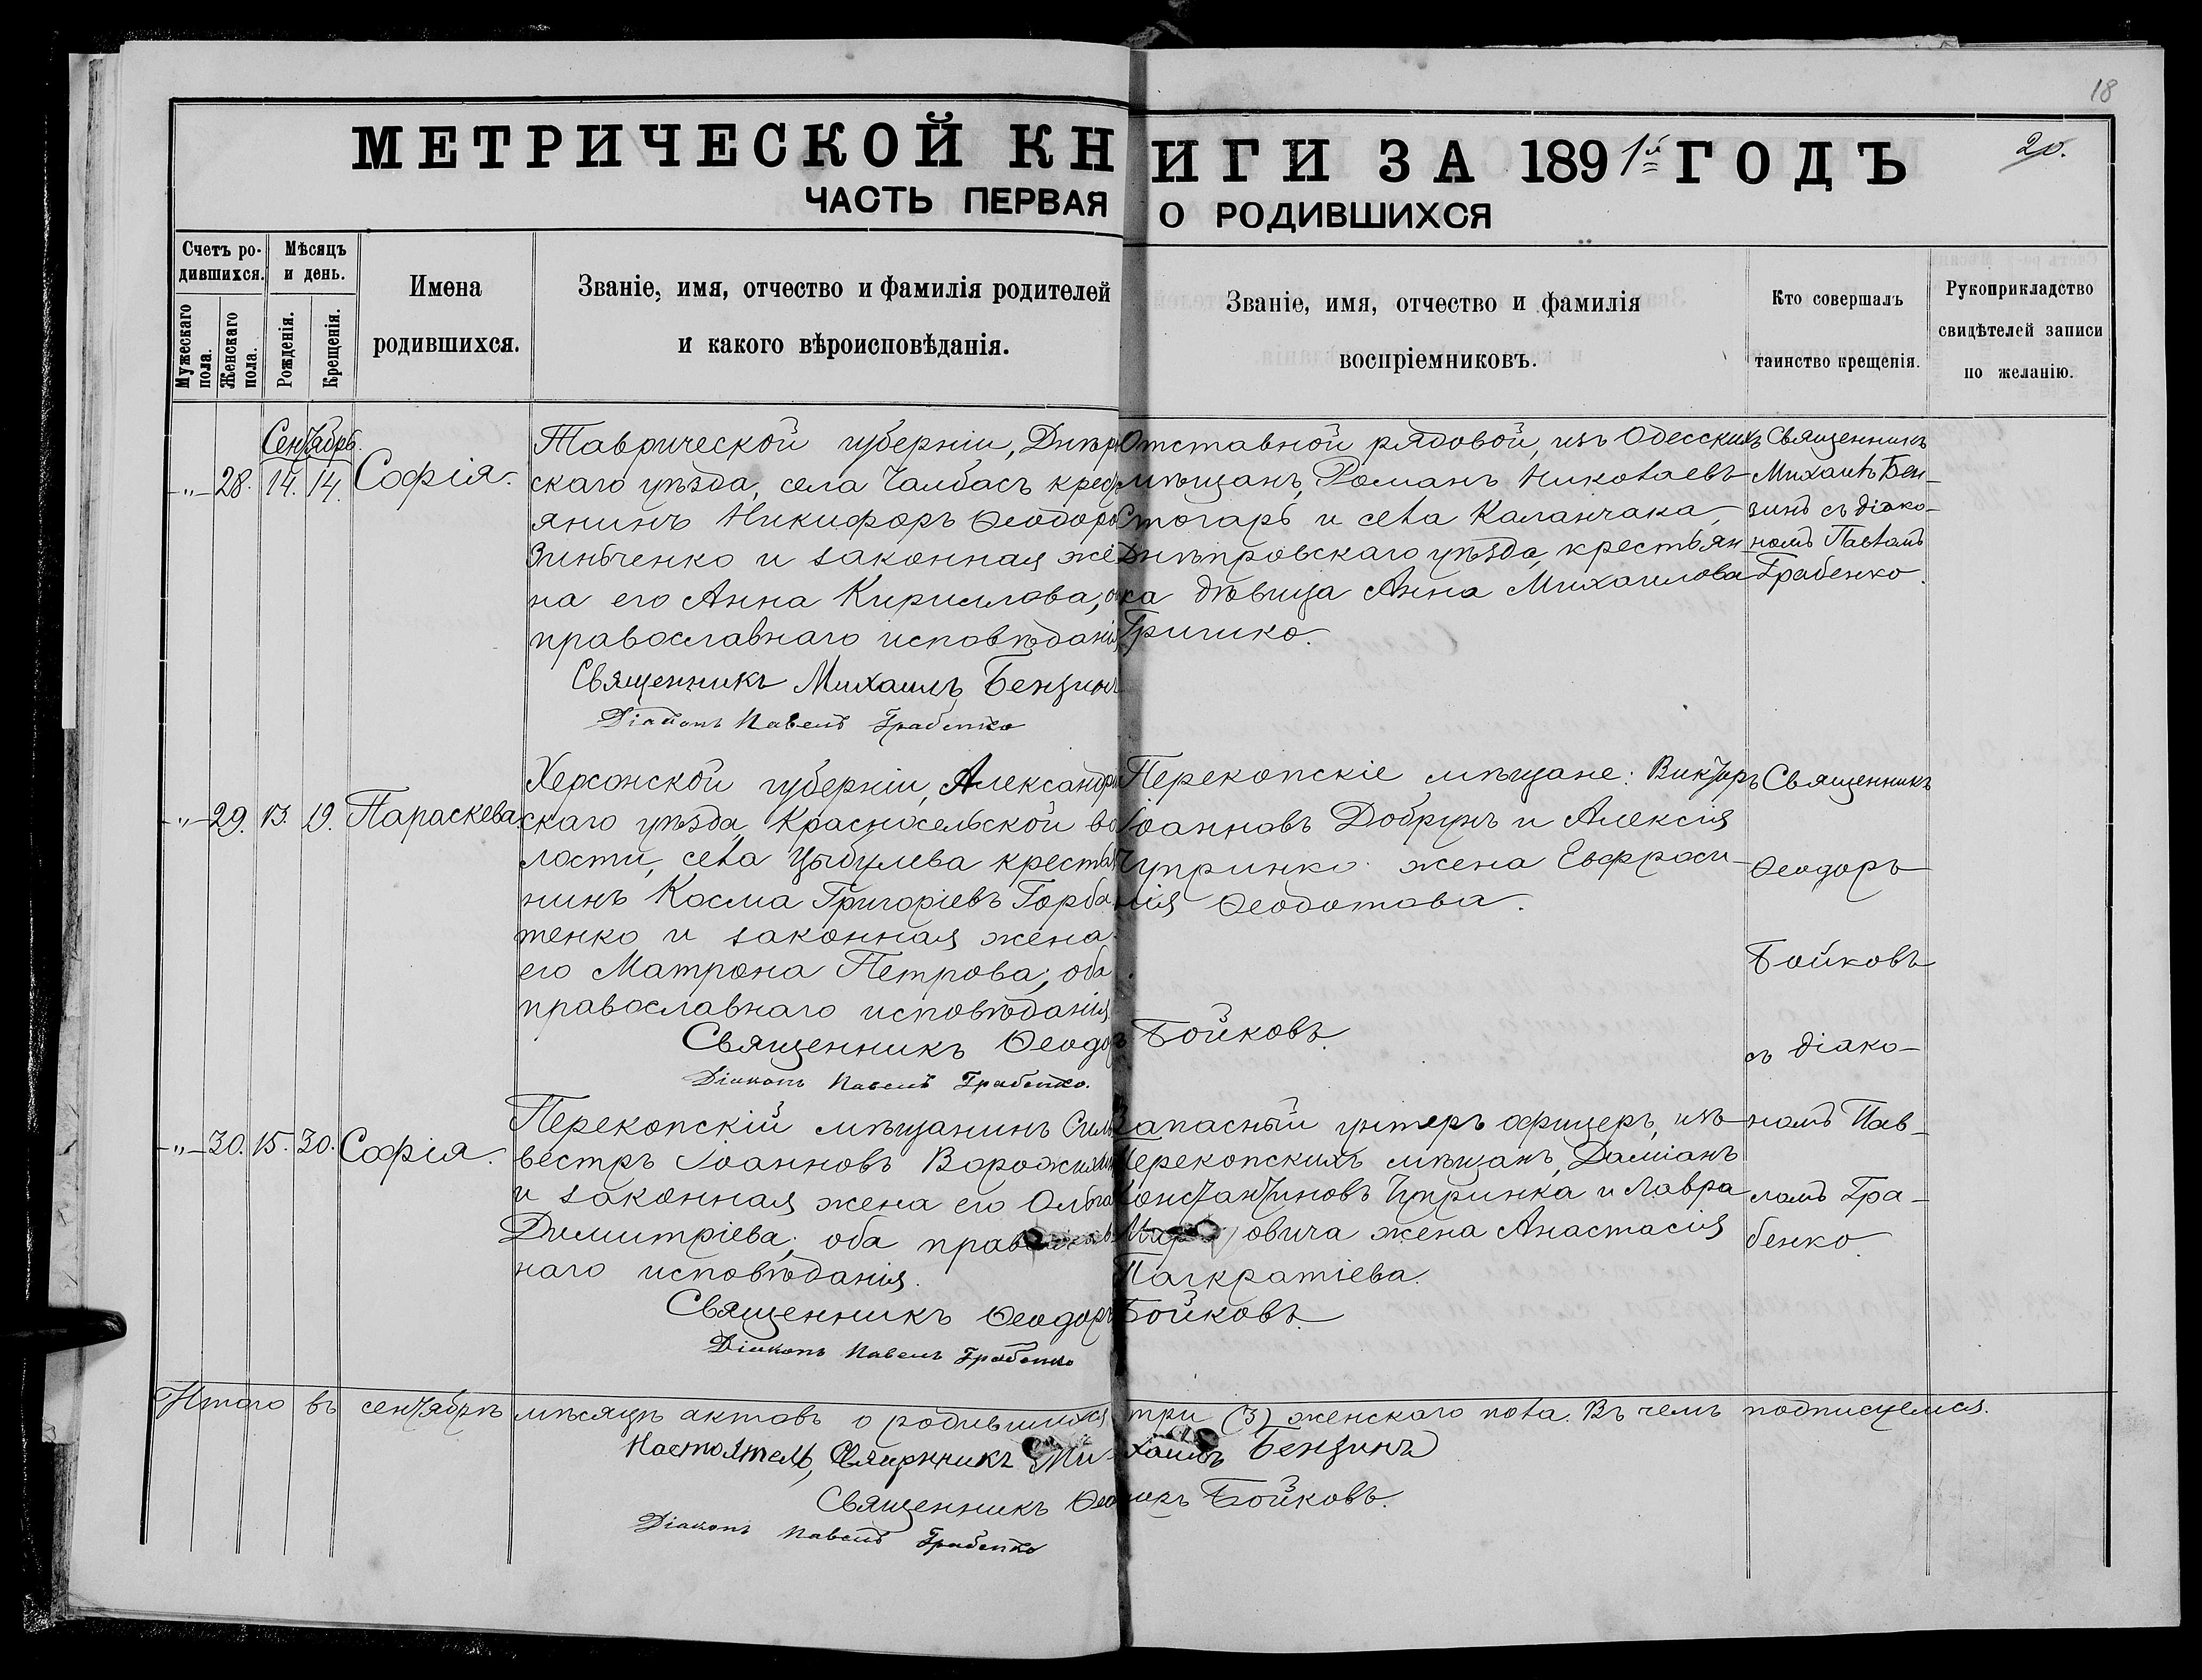 18
МЕТРИЧЕСКОЙ КНИГИ ЗА 1891й ГОДЪ
20.
ЧАСТЬ ПЕРВАЯ О РОДИВШИХСЯ
Счетъ родившихся.
Мужескаго пола.
Женскаго пола.
Мѣсяцъ и день.
Рожденія.
Крещенія.
Имена
родившихся.
Званіе, имя, отчество и фамилія родителей
и какого вѣроисповѣданія.
Званіе, имя, отчество и фамилія
воспріемниковъ.
Кто совершалъ
таинство крещенія.
Рукоприкладство
свидѣтелей записи
по желанію.
Сентябрь.
-"- 28. 14. 14. Софія.
Таврической губерніи, Днѣпр
скаго уѣзда, села Чалбасъ крест
янинъ Никифоръ Ѳеодоро
Зинченко и законная же
на его Анна Кирилова;
православнаго исповѣданія
Священникъ Михаилъ Бензинъ
Діаконъ Павелъ Грабенко
Отставной рядовой, изъ Одесскихъ
мѣщанъ, Романъ Николаевъ
Стогарь и села Каланчака,
Днѣпровскаго уѣзда, крестьян
ка дѣвица Анна Михаилова
Гришко.
Священникъ
Михаилъ Бен-
зинъ съ діако-
номъ Павломъ
Грабенко.
-"- 29. 13. 19. Параскева.
Херсонской губерніи, Александрій
скаго уѣзда, Красносельской во
лости, села Цыбулева крестья
нинъ Косма Григоріевъ Горба
тенко и законная жена
его Матрона Петрова; оба
православнаго исповѣданія
Священникъ Ѳеодоръ Бойковъ.
Діаконъ Павелъ Грабенко.
Перекопскіе мѣщане: Викторъ
Іоанновъ Добрунъ и Алексія
Чупринко жена Евфроси-
нія Ѳеодотова.
Священникъ
Ѳеодоръ
Бойковъ
съ діако-
номъ Пав-
ломъ Гра-
бенко.
-"- 30. 15. 30. Софія.
Перекопскій мѣщанинъ Силь
вестръ Іоанновъ
и законная жена его Ольга
Димитріева; оба православ
наго исповѣданія.
Священникъ Ѳеодоръ Бойковъ.
Діаконъ Павелъ Грабенко
Запасный унтеръ офицеръ, изъ
Перекопскихъ мѣщанъ, Даміанъ
Константиновъ Чупринка и Лавра
овича жена Анастасія
Панкратіева.
Итого въ сентябрѣ мѣсяцѣ актовъ о родившихся три (3) женскаго пола. Въ чемъ подписуемся.
Настоятель, Священникъ Михаилъ Бензинъ
Священникъ Ѳеодоръ Бойковъ.
Діаконъ Павелъ Грабенко